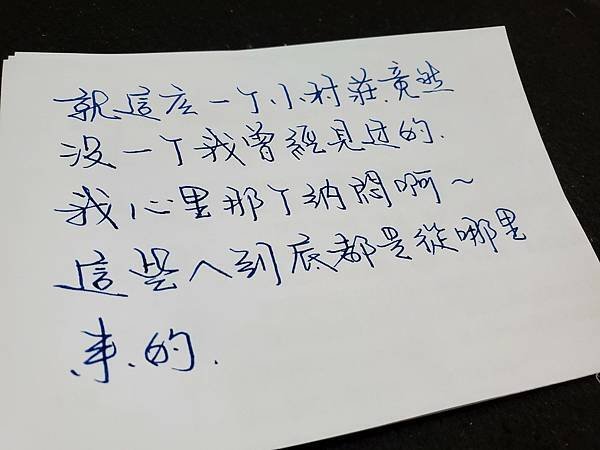 就這庅一丁小村莊,竟然
没一丁我曾經見过的.
我心里那丁納悶啊～
這些人到底都是從哪里
来的.